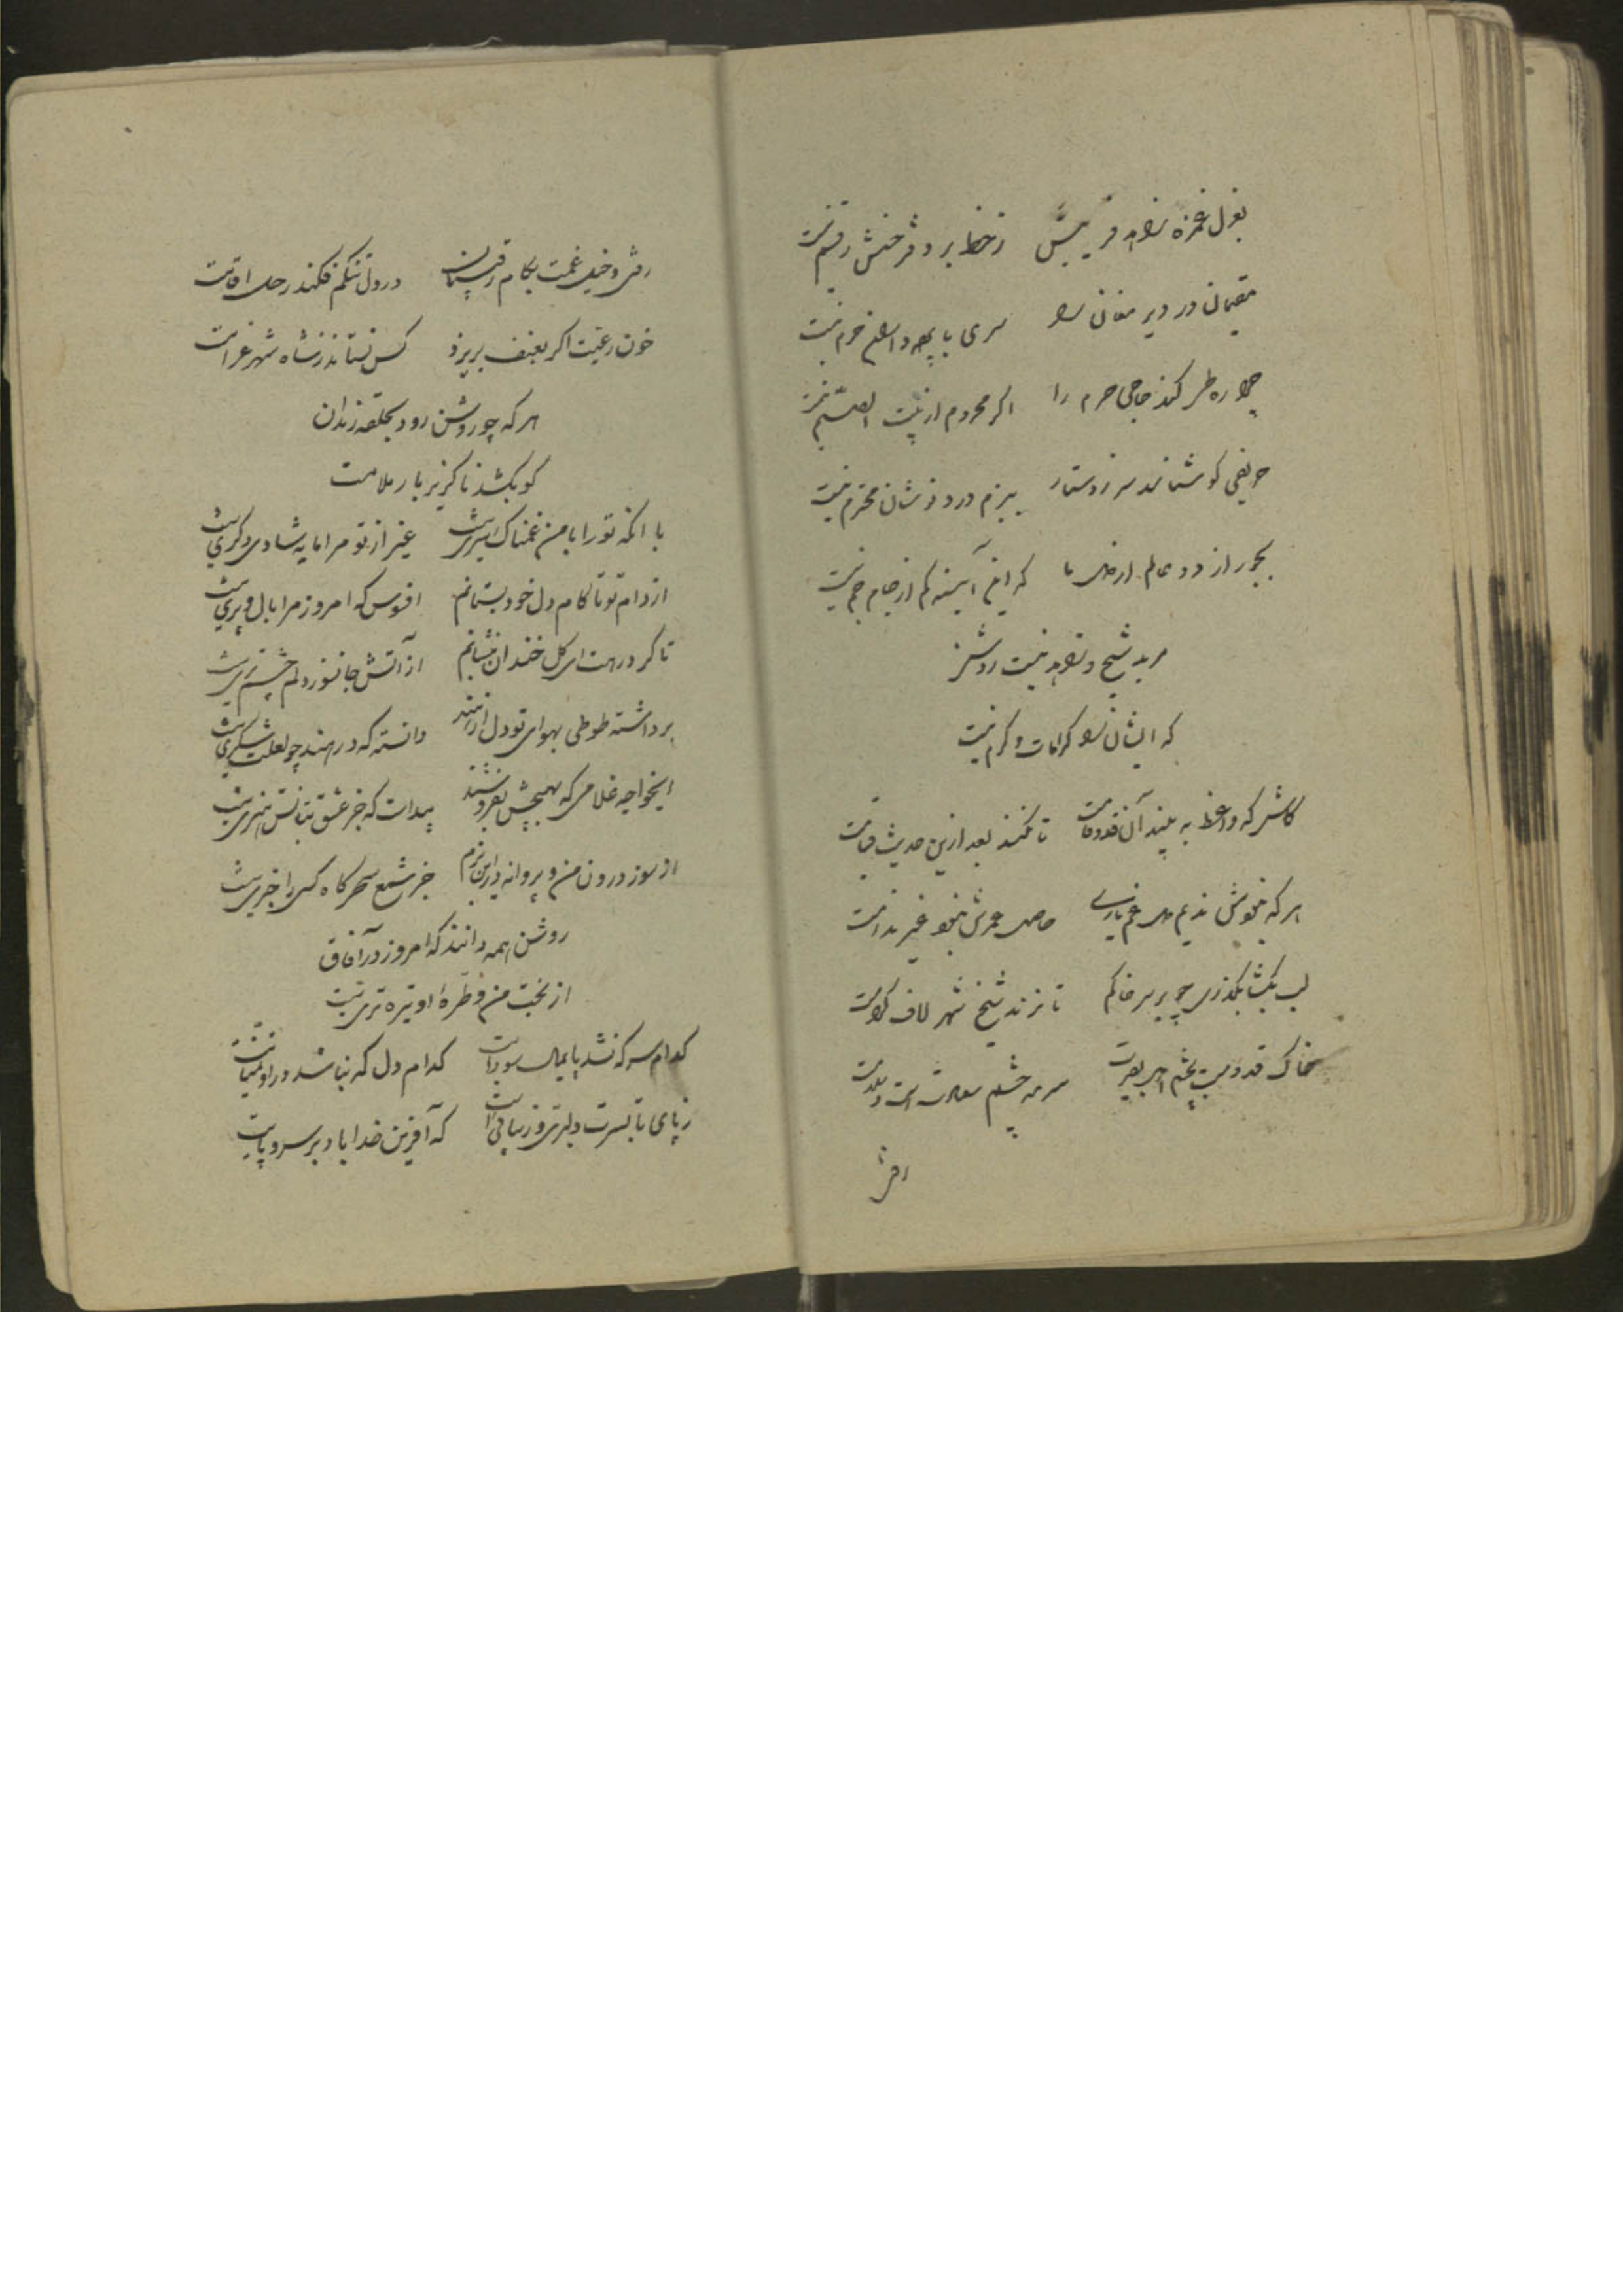 بغزل غمزه زاهد فریبش ز خط بر دفتر حسنش رقم نیست
مقیمان در دیر مغان را سری با باغ فرم نیست
چرا ره طی کند حاجی حرم را اگر محروم از بیت الصنم نیست
حریفی کو ستاند سر ز دستار ببزم درد نوشان محترم نیست
بجو راز دو عالم از دل ما که این آیینه کم از جام جم نیست
مرید شیخ و زاهد نیست روشن
که ایشان را کرامات و کرم نیست
کاش که واعظ به بیند آن قد و قامت تا نکند بعد ازین حدیث قیامت
هر که نخوش ندیم دل غم یاری حاصل عمرش نبود غیر ندامت
لب بگشا بگذری چو بر سر خاکم تا نزند شیخ شهر لاف کرامت
خاک قدومت بچشم اهل بصیرت سرمه چشم سعادت است و سلامت
رفتی
رفتی و خیل غمت بکام رقیبان در دل تنگم فکند رحل اقامت
خون رعیت اگر بعنف بریزد کس نستاند ز شاه شهر غرامت
هر که چو روشن رود بحلقه رندان
گو بکشد ناگزیر بار ملامت
با انکه تو را با من غمناک سری نیست غیر از تو مرا مایه شادی دگری نیست
از دام تو تا کام دل خود بستانم افسوس که امروز مرا بال و پری نیست
تا گر در رهت ای گل خندان بنشانم از آتش جانسوز دلم چشم تری نیست
برداشته طوطی بهوای تو دل از هند دانسته که در هند چو لعلت شکری نیست
ایخواجه غلامی که بهیچش نفروشند پیداست که جز عشق بتانش هنری نیست
از سوز درون من و پروانه در این بزم جز شمع سحرگاه کسی را خبری نیست
روشن همه دانند که امروز در آفاق
از بخت من و طره او تیره تری نیست
کدام سر که نشد پایمال سودایت کدام دل که نباشد در او تمنایت
ز پای تا بسرت دلبری و زیبائی است که آفرین خدا باد بر سر و پایت